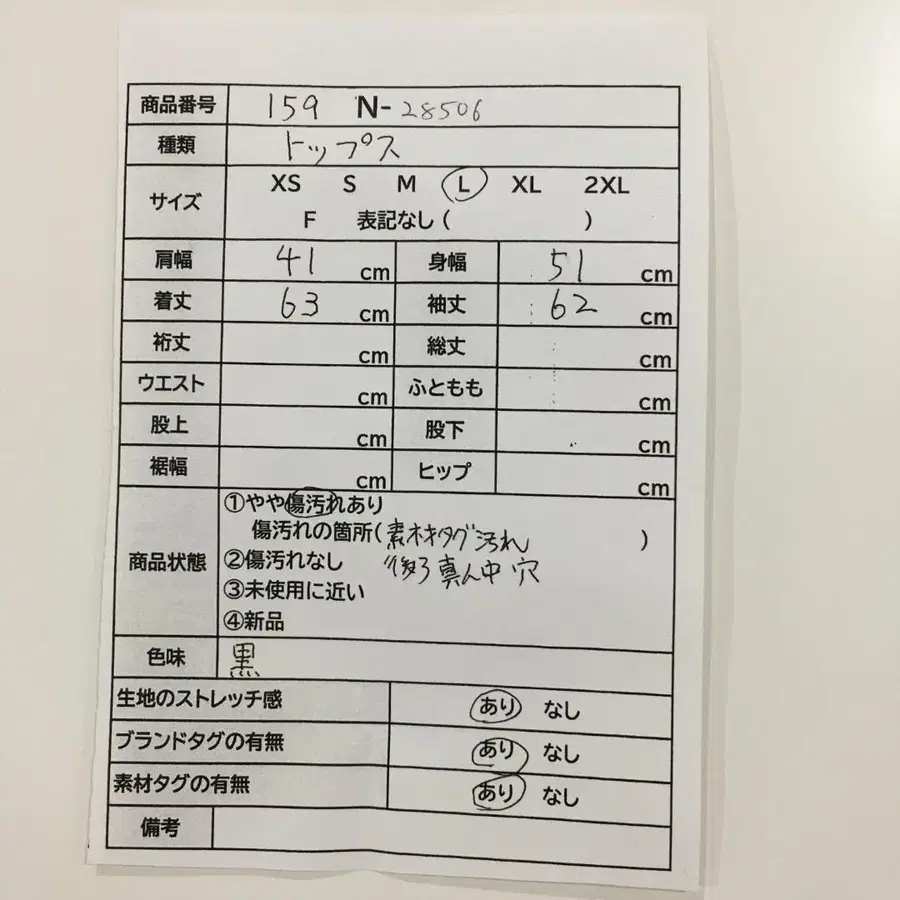 商品番号 159 N-28506
種類 トップス
サイズ XS S M L XL 2XL
F 表記なし ( )
肩幅 41 cm 身幅 51 cm
着丈 63 cm 袖丈 62 cm
裄丈 cm 総丈 cm
ウエスト cm ふともも cm
股上 cm 股下 cm
裾幅 cm ヒップ cm
商品状態 ①やや傷汚れあり
傷汚れの箇所(素材タグ汚れ )
②傷汚れなし 後ろ真ん中 穴
③未使用に近い
④新品
色味 黒
生地のストレッチ感 あり なし
ブランドタグの有無 あり なし
素材タグの有無 あり なし
備考